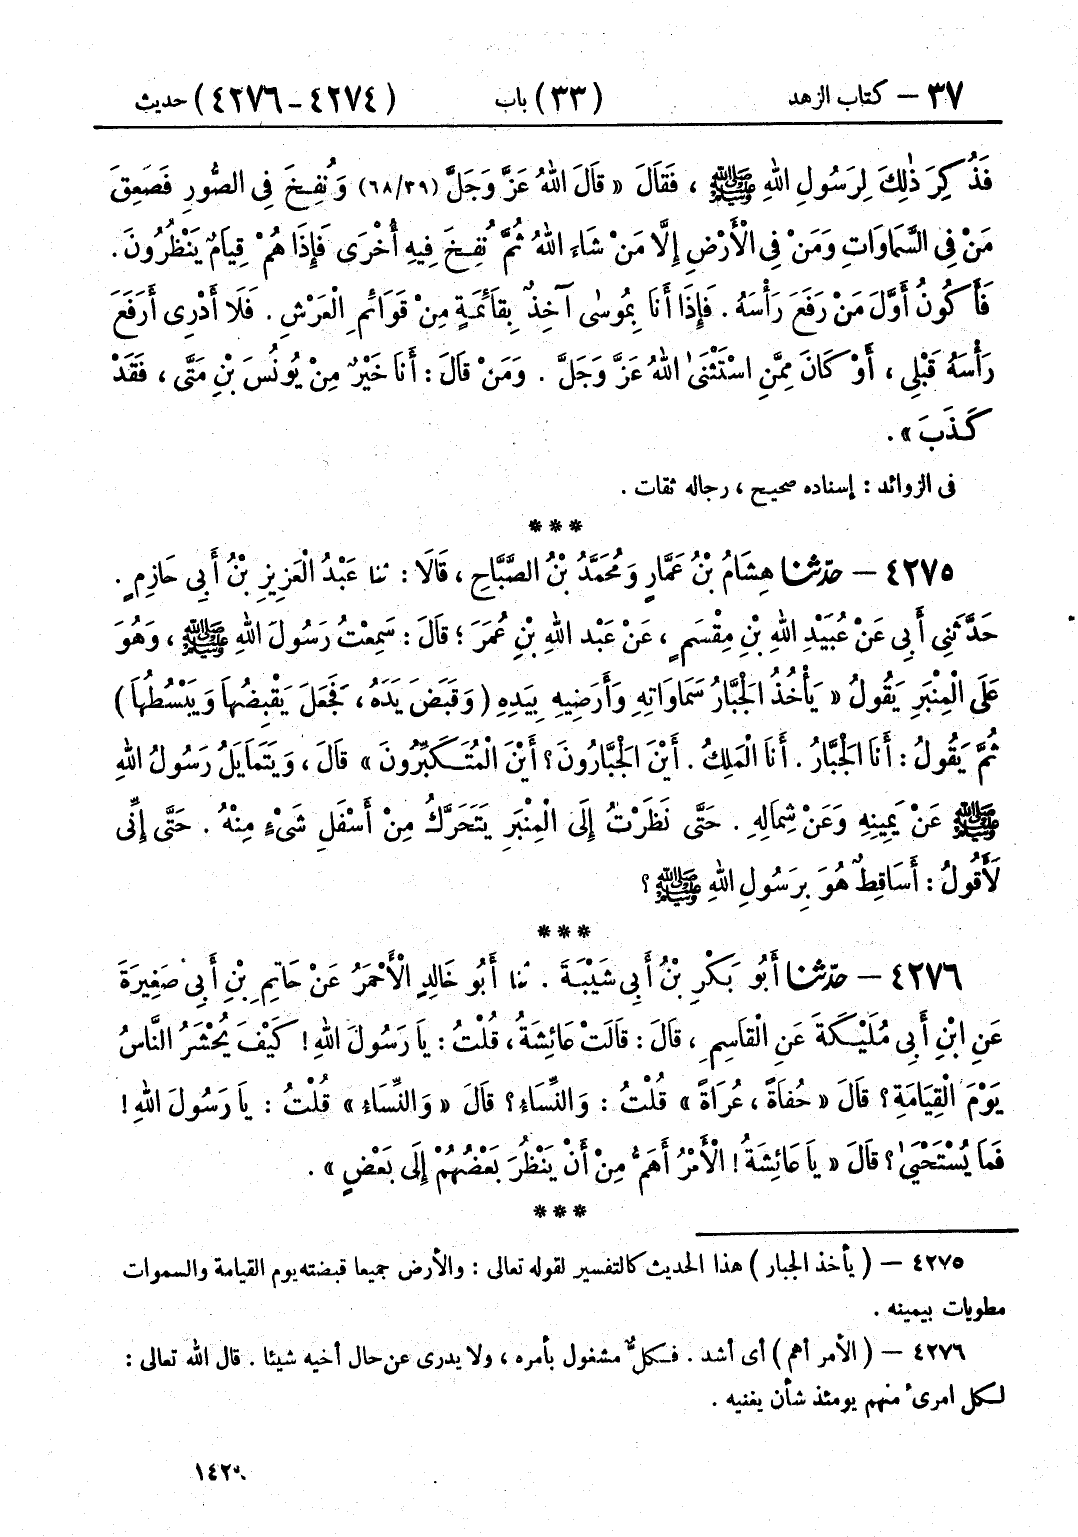 ٣٧ – كتاب الزهد (٣٣) باب (٤٢٧٤–٤٢٧٦) حديث
فَذُكِرَ ذٰلِكَ لِرَسُولِ اللهِ ﷺ ، فَقَالَ « قَالَ اللهُ عَزَّ وَجَلَّ (٦٨/٣٩) وَنُفِخَ فِى الصُّورِ فَصَعِقَ
مَنْ فِى السَّمَاوَاتِ وَمَنْ فِى الْأَرْضِ إِلَّا مَنْ شَاءَ اللهُ ثُمَّ نُفِخَ فِيهِ أُخْرَى فَإِذَا هُمْ قِيَامٌ يَنْظُرُونَ .
فَأَكُونُ أَوَّلَ مَنْ رَفَعَ رَأْسَهُ . فَإِذَا أَنَا بِمُوسٰى آخِذٌ بِقَائِمَةٍ مِنْ قَوَائِمِ الْعَرْشِ . فَلَا أَدْرِى أَرَفَعَ
رَأْسَهُ قَبْلِى ، أَوْ كَانَ مِمَّنِ اسْتَثْنَىٰ اللهُ عَزَّ وَجَلَّ . وَمَنْ قَالَ : أَنَا خَيْرٌ مِنْ يُونُسَ بْنِ مَتَّى ، فَقَدْ
كَذَبَ » .
فى الزوائد : إسناده صحيح ، رجاله ثقات .
***
٤٢٧٥ – حدّثنا هِشَامُ بْنُ عَمَّارٍ وَمُحَمَّدُ بْنُ الصَّبَّاحِ ، قَالَا : ثنا عَبْدُ الْعَزِيزِ بْنُ أَبِى حَازِمٍ .
حَدَّثَنِى أَبِى عَنْ عُبَيْدِ اللهِ بْنِ مِقْسَمٍ ، عَنْ عَبْدِ اللهِ بْنِ عُمَرَ ؛ قَالَ : سَمِعْتُ رَسُولَ اللهِ ﷺ ، وَهُوَ
عَلَى الْمِنْبَرِ يَقُولُ « يَأْخُذُ الْجَبَّارُ سَمَاوَاتِهِ وَأَرَضِيهِ بِيَدِهِ ( وَقَبَضَ يَدَهُ ، فَجَعَلَ يَقْبِضُهَا وَيَبْسُطُهَا )
ثُمَّ يَقُولُ : أَنَا الْجَبَّارُ . أَنَا الْمَلِكُ . أَيْنَ الْجَبَّارُونَ ؟ أَيْنَ الْمُتَكَبِّرُونَ » قَالَ ، وَيَتَمَايَلُ رَسُولُ اللهِ
ﷺ عَنْ يَمِينِهِ وَعَنْ شِمَالِهِ . حَتَّى نَظَرْتُ إِلَى الْمِنْبَرِ يَتَحَرَّكُ مِنْ أَسْفَلِ شَىْءٍ مِنْهُ . حَتَّى إِنِّى
لَأَقُولُ : أَسَاقِطٌ هُوَ بِرَسُولِ اللهِ ﷺ ؟
***
٤٢٧٦ – حدّثنا أَبُو بَكْرِ بْنُ أَبِى شَيْبَةَ . ثنا أَبُو خَالِدٍ الْأَحْمَرُ عَنْ حَاتِمِ بْنِ أَبِى صَغِيرَةَ
عَنِ ابْنِ أَبِى مُلَيْكَةَ عَنِ الْقَاسِمِ ، قَالَ : قَالَتْ عَائِشَةُ ، قُلْتُ : يَا رَسُولَ اللهِ ! كَيْفَ يُحْشَرُ النَّاسُ
يَوْمَ الْقِيَامَةِ ؟ قَالَ « حُفَاةً ، عُرَاةً » قُلْتُ : وَالنِّسَاءُ ؟ قَالَ « وَالنِّسَاءُ » قُلْتُ : يَا رَسُولَ اللهِ !
فَمَا يُسْتَحْيَىٰ ؟ قَالَ « يَا عَائِشَةُ ! الْأَمْرُ أَهَمُّ مِنْ أَنْ يَنْظُرَ بَعْضُهُمْ إِلَى بَعْضٍ » .
***
٤٢٧٥ – ( يأخذ الجبار ) هذا الحديث كالتفسير لقوله تعالى : والأرض جميعا قبضته يوم القيامة والسموات
مطويات بيمينه .
٤٢٧٦ – ( الأمر أهم ) أى أشد . فكلٌّ مشغول بأمره ، ولا يدرى عن حال أخيه شيئا . قال الله تعالى :
لكل امرىء منهم يومئذ شأن يغنيه .